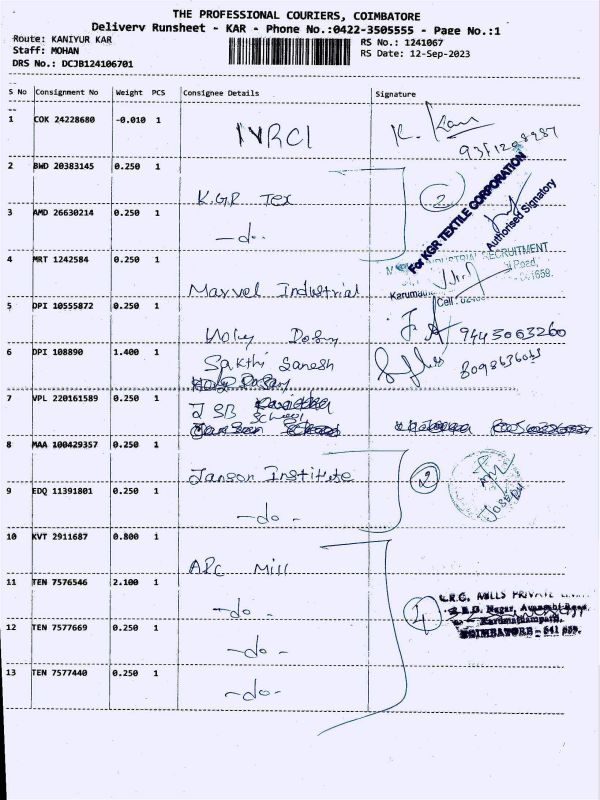 THE PROFESSIONAL COURIERS, COIMBATORE
Delivery Runsheet - KAR - Phone No.:0422-3505555 - Page No.:1
Route: KANIYUR KAR
RS No.: 1241067
Staff: MOHAN
RS Date: 12-Sep-2023
DRS No.: DCJB124106701
S No Consignment No Weight PCS Consignee Details Signature
1 COK 24228680 -0.010 1 IVRCl K. Kan
2 BWD 20383145 0.250 1 K.G.R Tex 2
For KGR TEXTILE CORPORATION
Authorised Signatory
3 AMD 26630214 0.250 1 -do-
4 MRT 1242584 0.250 1 Marvel Industrial
INDUSTRIAL RECRUITMENT
Road,
Cell :
5 DPI 10555872 0.250 1 Holy 9445063260
6 DPI 108890 1.400 1 Sakthi Ganesh
7 VPL 220161589 0.250 1 JSB School
8 MAA 100429357 0.250 1 Janson Institute 2
JOSEPH
9 EDQ 11391801 0.250 1 -do-
10 KVT 2911687 0.800 1 ARC Mill
11 TEN 7576546 2.100 1 -do- 4
MILLS PRIVATE
Nagar,
Karumathampatti,
COIMBATORE - 641 659.
12 TEN 7577669 0.250 1 -do-
13 TEN 7577440 0.250 1 -do-